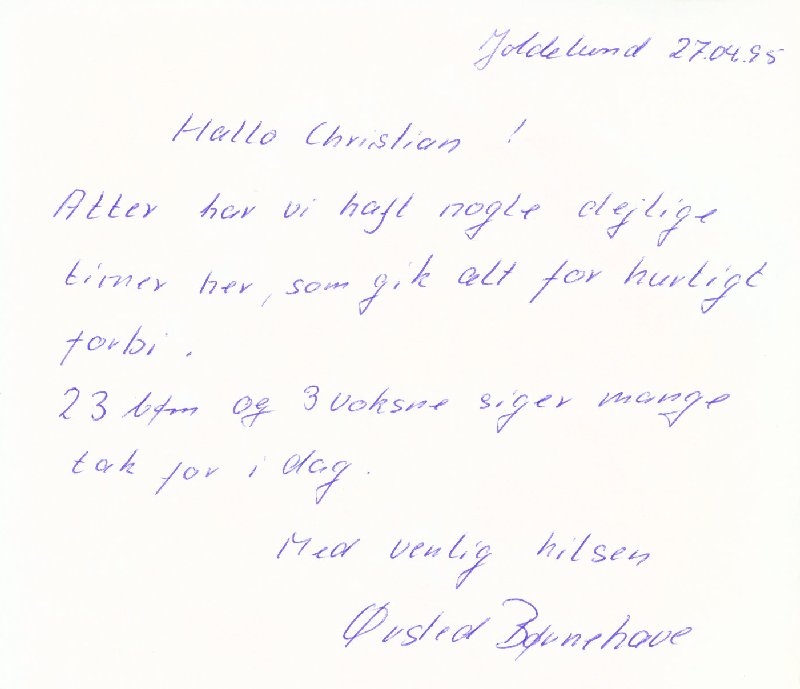 Joldelund 27.04.95
Hallo Christian !
Atter har vi haft nogle dejlige
timer her, som gik alt for hurtigt
forbi.
23 børn og 3 voksne siger mange
tak for i dag.
Med venlig hilsen
Ørsted Børnehave